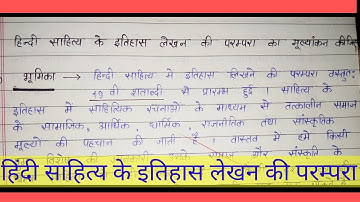 हिन्दी साहित्य के इतिहास लेखन की परम्परा का मूल्यांकन कीजिए
भूमिका → हिन्दी साहित्य में इतिहास लिखने की परम्परा वस्तुतः
19 वीं शताब्दी से प्रारम्भ हुई । साहित्य के
इतिहास में साहित्यिक रचनाओं के माध्यम से तत्कालीन समाज
के सामाजिक, आर्थिक, धार्मिक, राजनीतिक तथा सांस्कृतिक
मूल्यों की पहचान की जाती है । वास्तव में हमें किसी
विशेष की समाज और संस्कृति के
हिंदी साहित्य के इतिहास लेखन की परम्परा